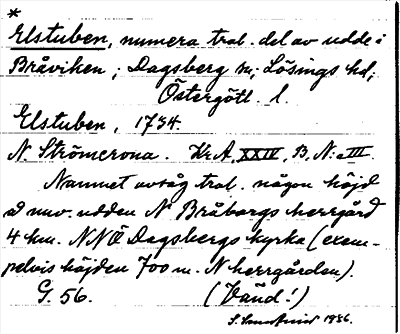 *
Elstuben, numera trol. del av udde i
Bråviken; Dagsberg sn; Lösings hd;
Östergötl. l.
Elstuben, 1734.
N. Strömcrona. Kr.A, XXIV, B. N:o III.
Namnet avsåg trol. någon höjd
å nuv. udden N Bråborgs herrgård
4 km. NNÖ Dagsbergs kyrka (exem-
pelvis höjden 700 m. N herrgården).
G. 56. (Vänd!)
1936.